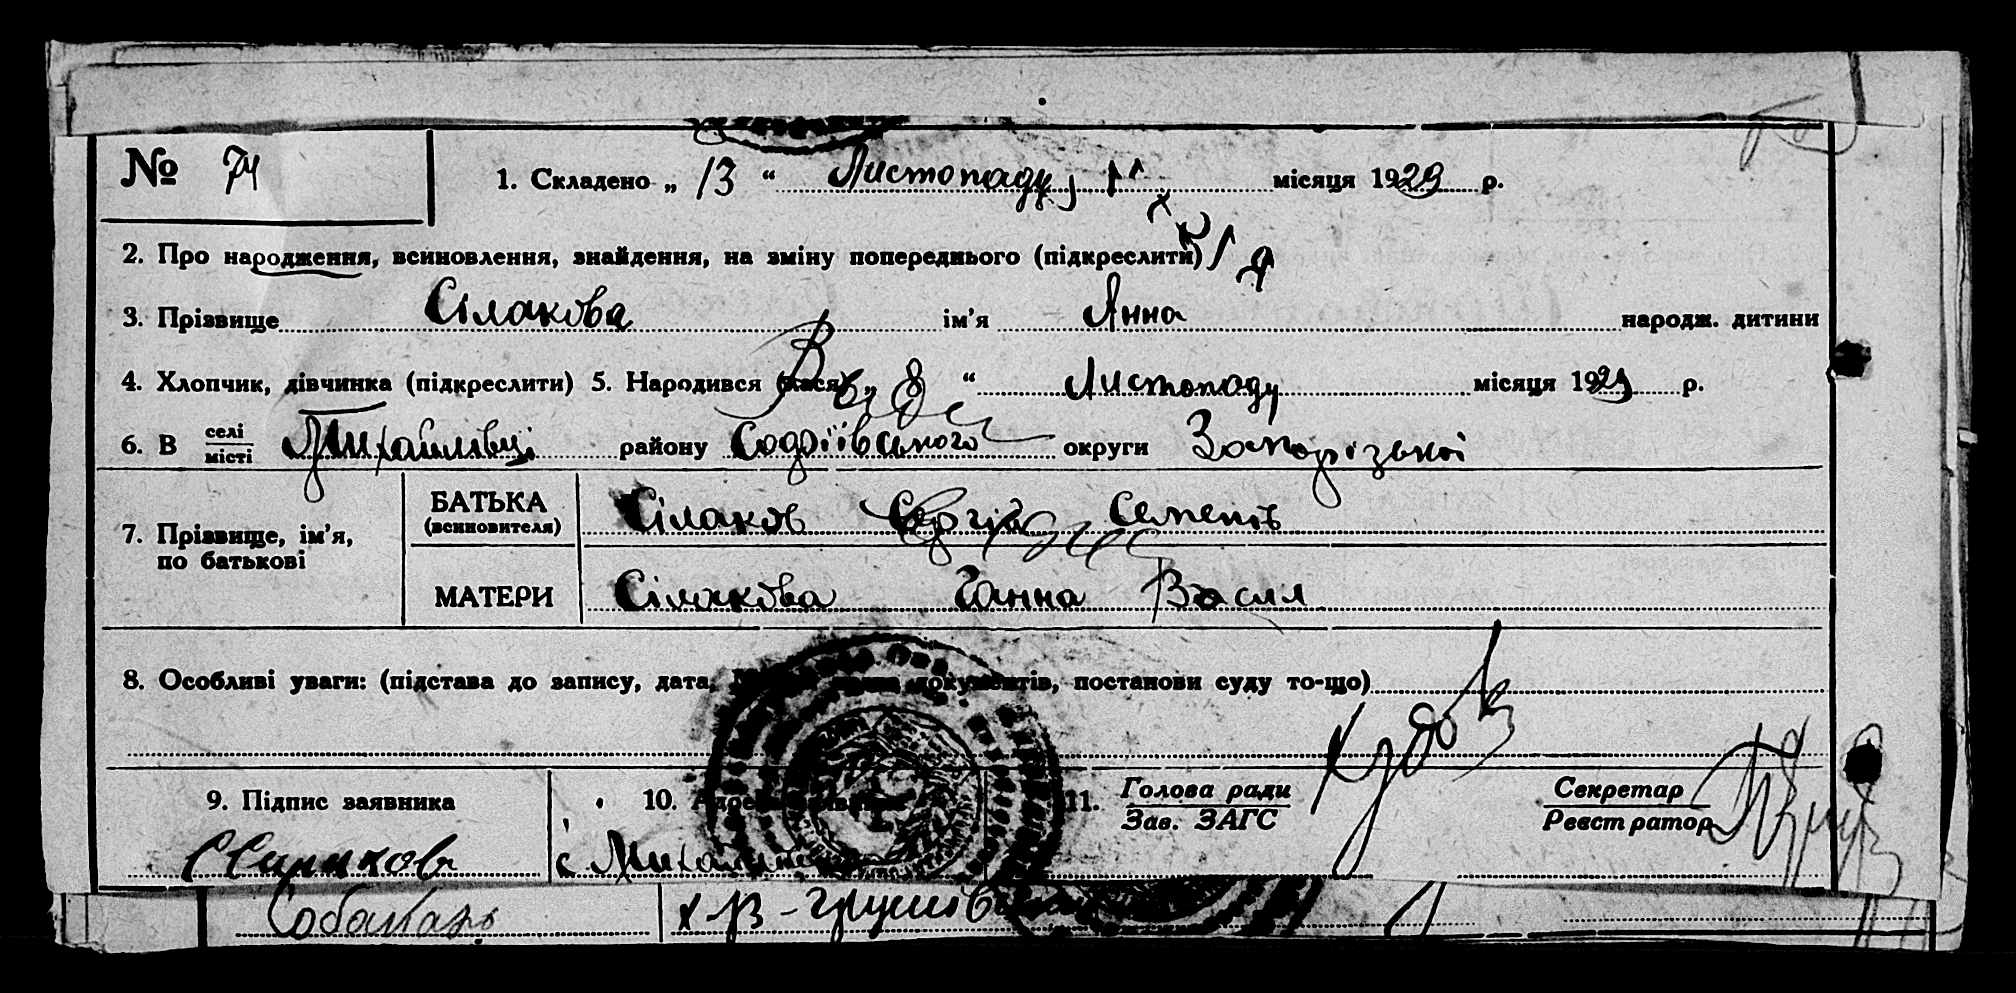 № 74 1. Складено „ 13 “ Листопаду місяця 1929 р.
2. Про народження, всиновлення, знайдення, на зміну попереднього (підкреслити)
3. Прізвище Сілакова ім'я Анна народж. дитини
4. Хлопчик, дівчинка (підкреслити) 5. Народився (лася) „ 8 “ Листопаду місяця 1929 р.
6. В селі місті Михайлівці району округи Запорізької
7. Прізвище, ім'я, по батькові
БАТЬКА (всиновителя) Сілаков Сергій Семенів
МАТЕРИ Сілакова Ганна Васил
8. Особливі уваги: (підстава до запису, дата, документів, постанови суду то-що)
9. Підпис заявника 10. 11. Голова ради Зав. ЗАГС Секретар Реєстратор
с